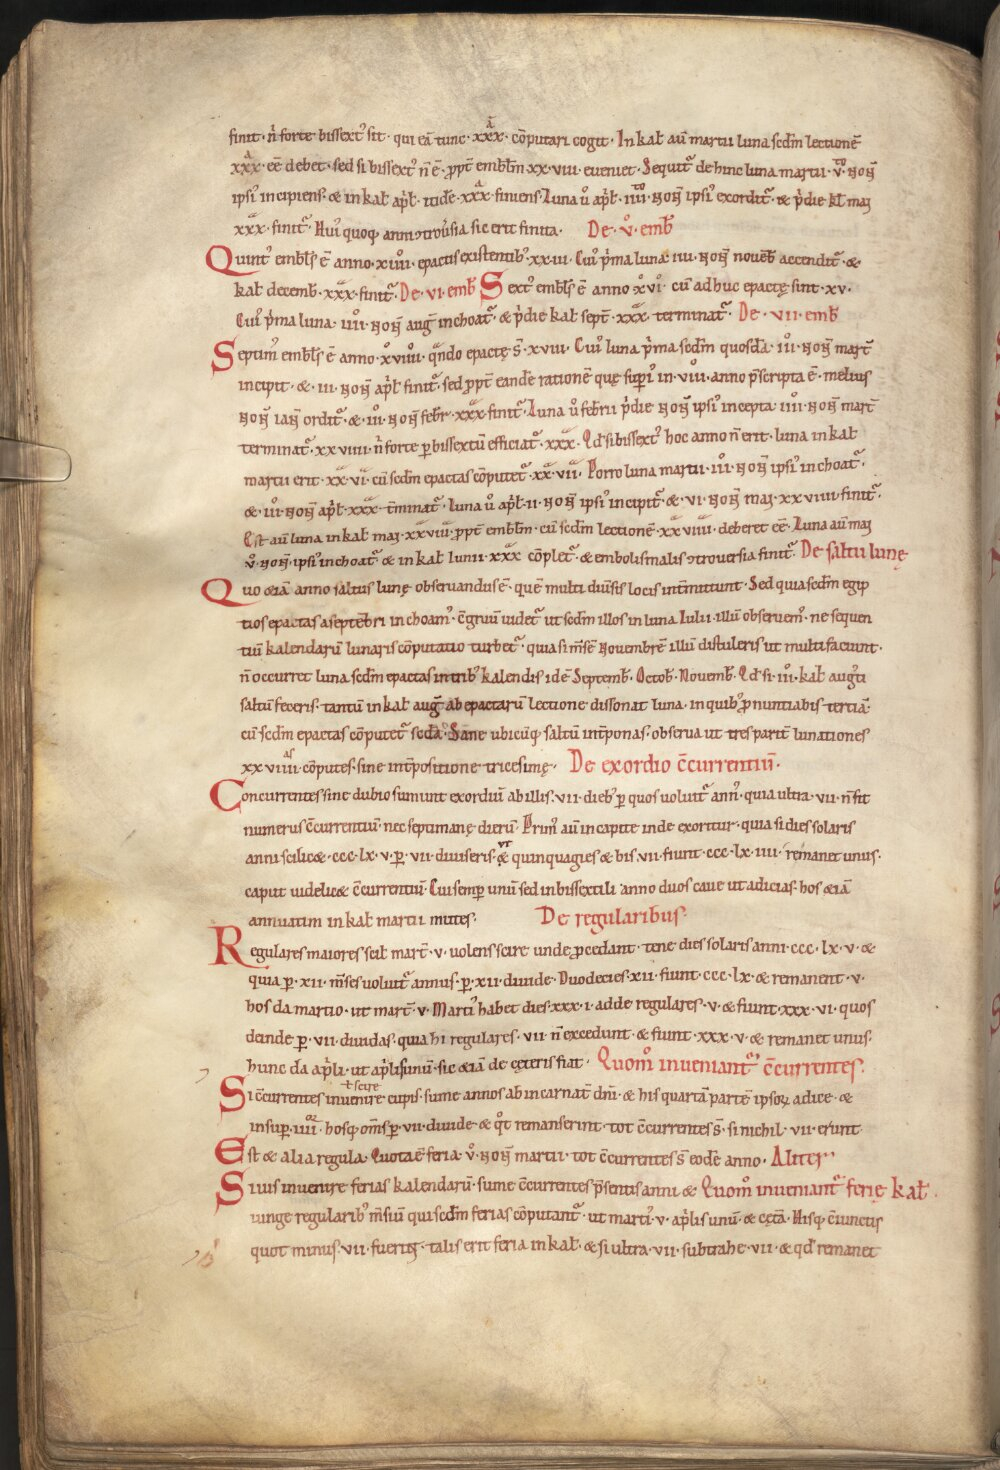 finit· n̄ forte bissext᾽ sit· qui eā tunc ·xxx· cōputari cogit· In kaƚ aū martii luna scdm̄ lectionē
xxx· eē debet· sed si bissext᾽ n̄ ē· ꝓpt̄ emblm̄ xx·viiii· eueniet· Sequit᷑ dehinc luna martii· v· noñ
ipsi᾽ incipiens· & in kaƚ apƚ· itidē ·xxx· finiens· Luna ů apƚ· iiii· noñ ipsi᾽ exordit᷑· & p̄die kƚ mai
xxx· finit᷑· Hui᾽ quoq· anni ꝯtrou̓sia sic erit finita· De· v̊· emƀ
Quint᾽ embƚs ē anno·xiiii· epactis existentib᾽ xx·iii· Cui᾽ p̄ma luna· iiii· noñ noueƀ accendit᷑· &
kaƚ decemƀ· xxx· finit᷑· De·vi·emƀ Sext᾽ embƚs ē anno xvi· cū adhuc epactę sint·xv·
Cui᾽ p̄ma luna· iiii· noñ aug̃ inchoat᷑· & p̄die kaƚ sept̄· xxx· terminat᷑· De·vii·emƀ
Septim᾽ embƚs ē anno·xviiii· qn̄do epactę s̄·xviii· Cui᾽ luna p̄ma scdm̄ quosdā· iii· noñ mart̄
incipit· & ·iii· noñ apƚ finit᷑· sed ꝓpt̄ eandē rationē quę supi᾽ in·viii·anno p̄scripta ē· melius
noñ iañ ordit᷑· & ·iii· noñ febr̄ ·xxx· finit᷑· Luna ů febrii p̄die noñ ipsi᾽ incepta iiii· noñ mart̄
terminat᷑· xx·viiii· n̄ forte p bissextū efficiat᷑ ·xxx· Qd̄ si bissext᾽ hoc anno n̄ erit· luna in kaƚ
martii erit ·xx·vi· cū scdm̄ epactas cōputet᷑ ·xx·vii· Porro luna martii· iii· noñ ipsi᾽ inchoat᷑·
& ·iii· noñ apƚ ·xxx· t̄minat᷑· Luna ů apƚ· ii· noñ ipsi᾽ incipit᷑· & vi· noñ mai· xxviiii· finit᷑·
Est aū luna in kaƚ mai·xxviii· ꝓpt̄ emblm̄· cū scdm̄ lectionē·xxviiii· deberet eē· Luna aū mai
v̊· noñ·ipsi᾽ inchoat᷑· & in kaƚ iunii ·xxx· cōplet᷑· & embolismalis ꝯtrouersia finit᷑· De saltu lunę
Quo &iā anno saltus lunę obseruandus ē· quē multi diu̓sis locis int̄mittunt· Sed quia scdm̄ egip
tios epactas a septēbri inchoam᾽· c̄gruū uidet᷑ ut scdm̄ illos in luna Iulii· illū obseruem᾽· ne sequen
tiū kalendarū lunaris cōputatio turbet᷑· quia si m̄se Nouembrē illū distuleris ut multi faciunt·
n̄ occurret luna scdm̄ epactas in trib᾽ kalendis idē Septemƀ· Octoƀ· Nouemƀ· Qd̄ si iii· kaƚ aug᾽ti
saltū feceris· tantū in kaƚ aug̃ ab epactarū lectione dissonat luna· in quib᾽ ꝓnuntiabis tertiā·
cū scdm̄ epactas cōputet᷑ scdā· Sane ubicūq· saltū int̄ponas· obserua ut tres parit̄ lunationes
xxviiii· cōputes· sine int̄positione tricesimę· De exordio c̄currentiū·
Concurrentes sine dubio sumunt exordiū ab illis· vii· dieb᾽ p quos uoluit᷑ ann᾽· quia ultra·vii·n̄ fit
numerus c̄currentiū· nec septimanę dierū· Prim᾽ aū in capite inde exoritur· quia si dies solaris
anni scilic&·ccc·lx·v·p·vii·diuiseris· & quinquagies & bis·vii·fiunt·ccc·lx·iiii· remanet unus·
caput uidelic& c̄currentiū· Cui semp unū sed in bissextili anno duos caue ut adicias· hos &iā
annuatim in kaƚ martii mutes· De regularibus·
Regulares maiores sciƚ mart̄·v·uolens scire unde ꝓcedant· tene dies solaris anni·ccc·lx·v· &
quia p·xii· m̄ses uoluit᷑ annus· p·xii·diuide· Duodecies·xii·fiunt·ccc·lx· & remanent·v·
hos da martio· ut mart̄·v· Marti᾽ habet dies·xxx·i· adde regulares·v· & fiunt·xxx·vi· quos
deinde p·vii·diuidas· quia hi regulares·vii·n̄ excedunt· & fiunt·xxx·v· & remanet unus·
hunc da ap̄li· ut ap̄lis unū· sic &iā de cęteris fiat· Quom̊ inueniant᷑ c̄currentes·
ł scire
Si c̄currentes inuenire cupis· sume annos ab incarnat̄ dn̄i· & his quartā partē ipsoꝝ adice· &
insup·iiii· hosq· om̄s p·vii·diuide· & q̊t remanserint· tot c̄currentes s̄· si nichil·vii·erunt
Est & alia regula· Quota ē feria·v̊· noñ martii· tot c̄currentes s̄ eodē anno· Alit̄
Si uis inuenire ferias kalendarū· sume c̄currentes p̄sentis anni & Quom̊ inueniant᷑ ferię kaƚ
iunge regularib᾽ m̄siū qui scdm̄ ferias cōputant᷑· ut marti᾽·v·ap̄lis unū· & cęta· Hisq· c̄iunctis
quot minus·vii·fuerit̄· talis erit feria in kaƚ· & si ultra·vii·subtrahe·vii· & qd̄ remanet